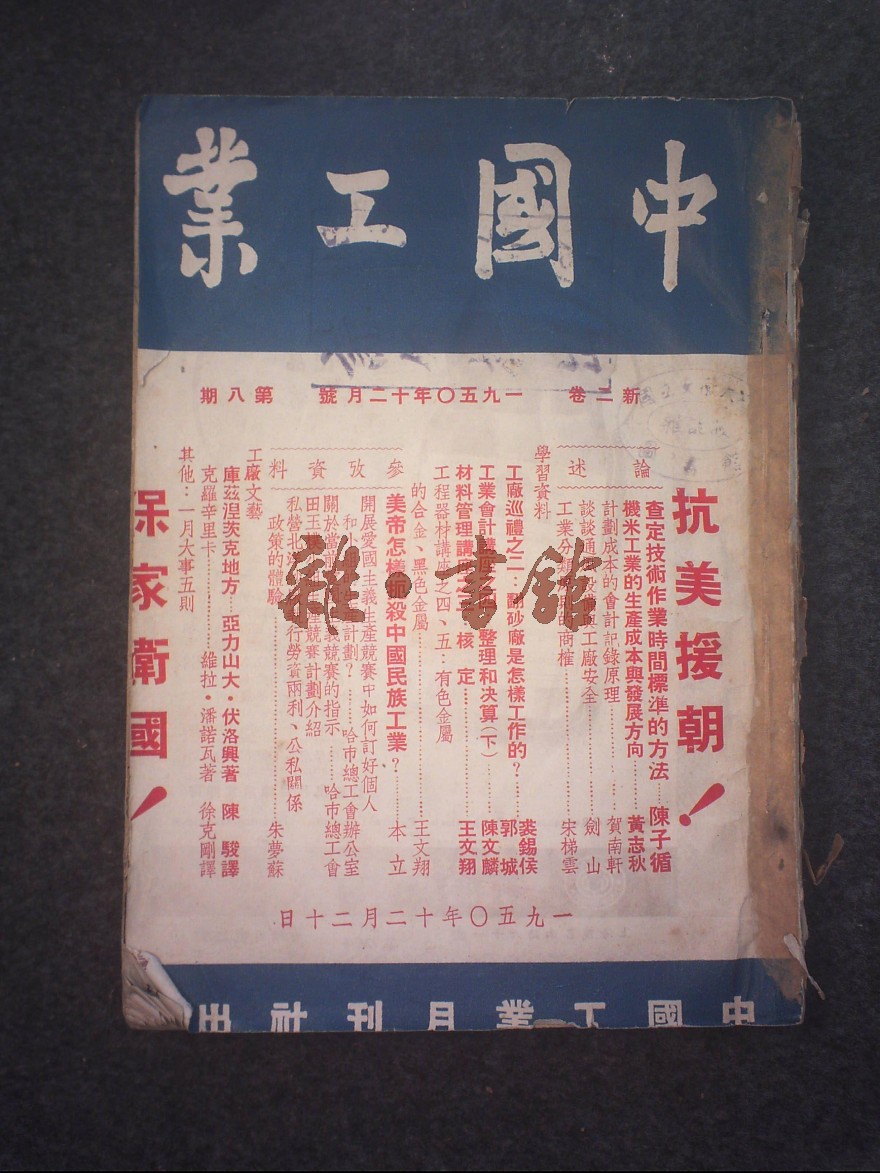 中國工業
新二卷 一九五〇年十二月號 第八期
抗美援朝！
論述
查定技術作業時間標準的方法……陳子循
機米工業的生產成本與發展方向……黃志秋
計劃成本的會計記錄原理……賀南軒
談談通風設備與工廠安全……劍山
工業分類……的商榷……宋梯雲
學習資料
工廠巡禮之二：翻砂廠是怎樣工作的？……裘錫侯 郭城
工業會計講座……整理和決算(下)……陳文麟
材料管理講座之……核定……王文翔
工程器材講座之四、五：有色金屬
的合金、黑色金屬……王文翔
參攷資料
美帝怎樣扼殺中國民族工業？……本立
開展愛國主義生產競賽中如何訂好個人
和小……計劃？……哈市總工會辦公室
關於當前……義競賽的指示……哈市總工會
田玉……產競賽計劃介紹
私營北……行勞資兩利、公私關係
政策的體驗……朱夢蘇
工廠文藝
庫茲涅茨克地方……亞力山大·伏洛興著 陳駿譯
克羅辛里卡……維拉·潘諾瓦著 徐克剛譯
其他：一月大事五則
保家衛國！
一九五〇年十二月二十日
中國工業月刊社出
雜·書館